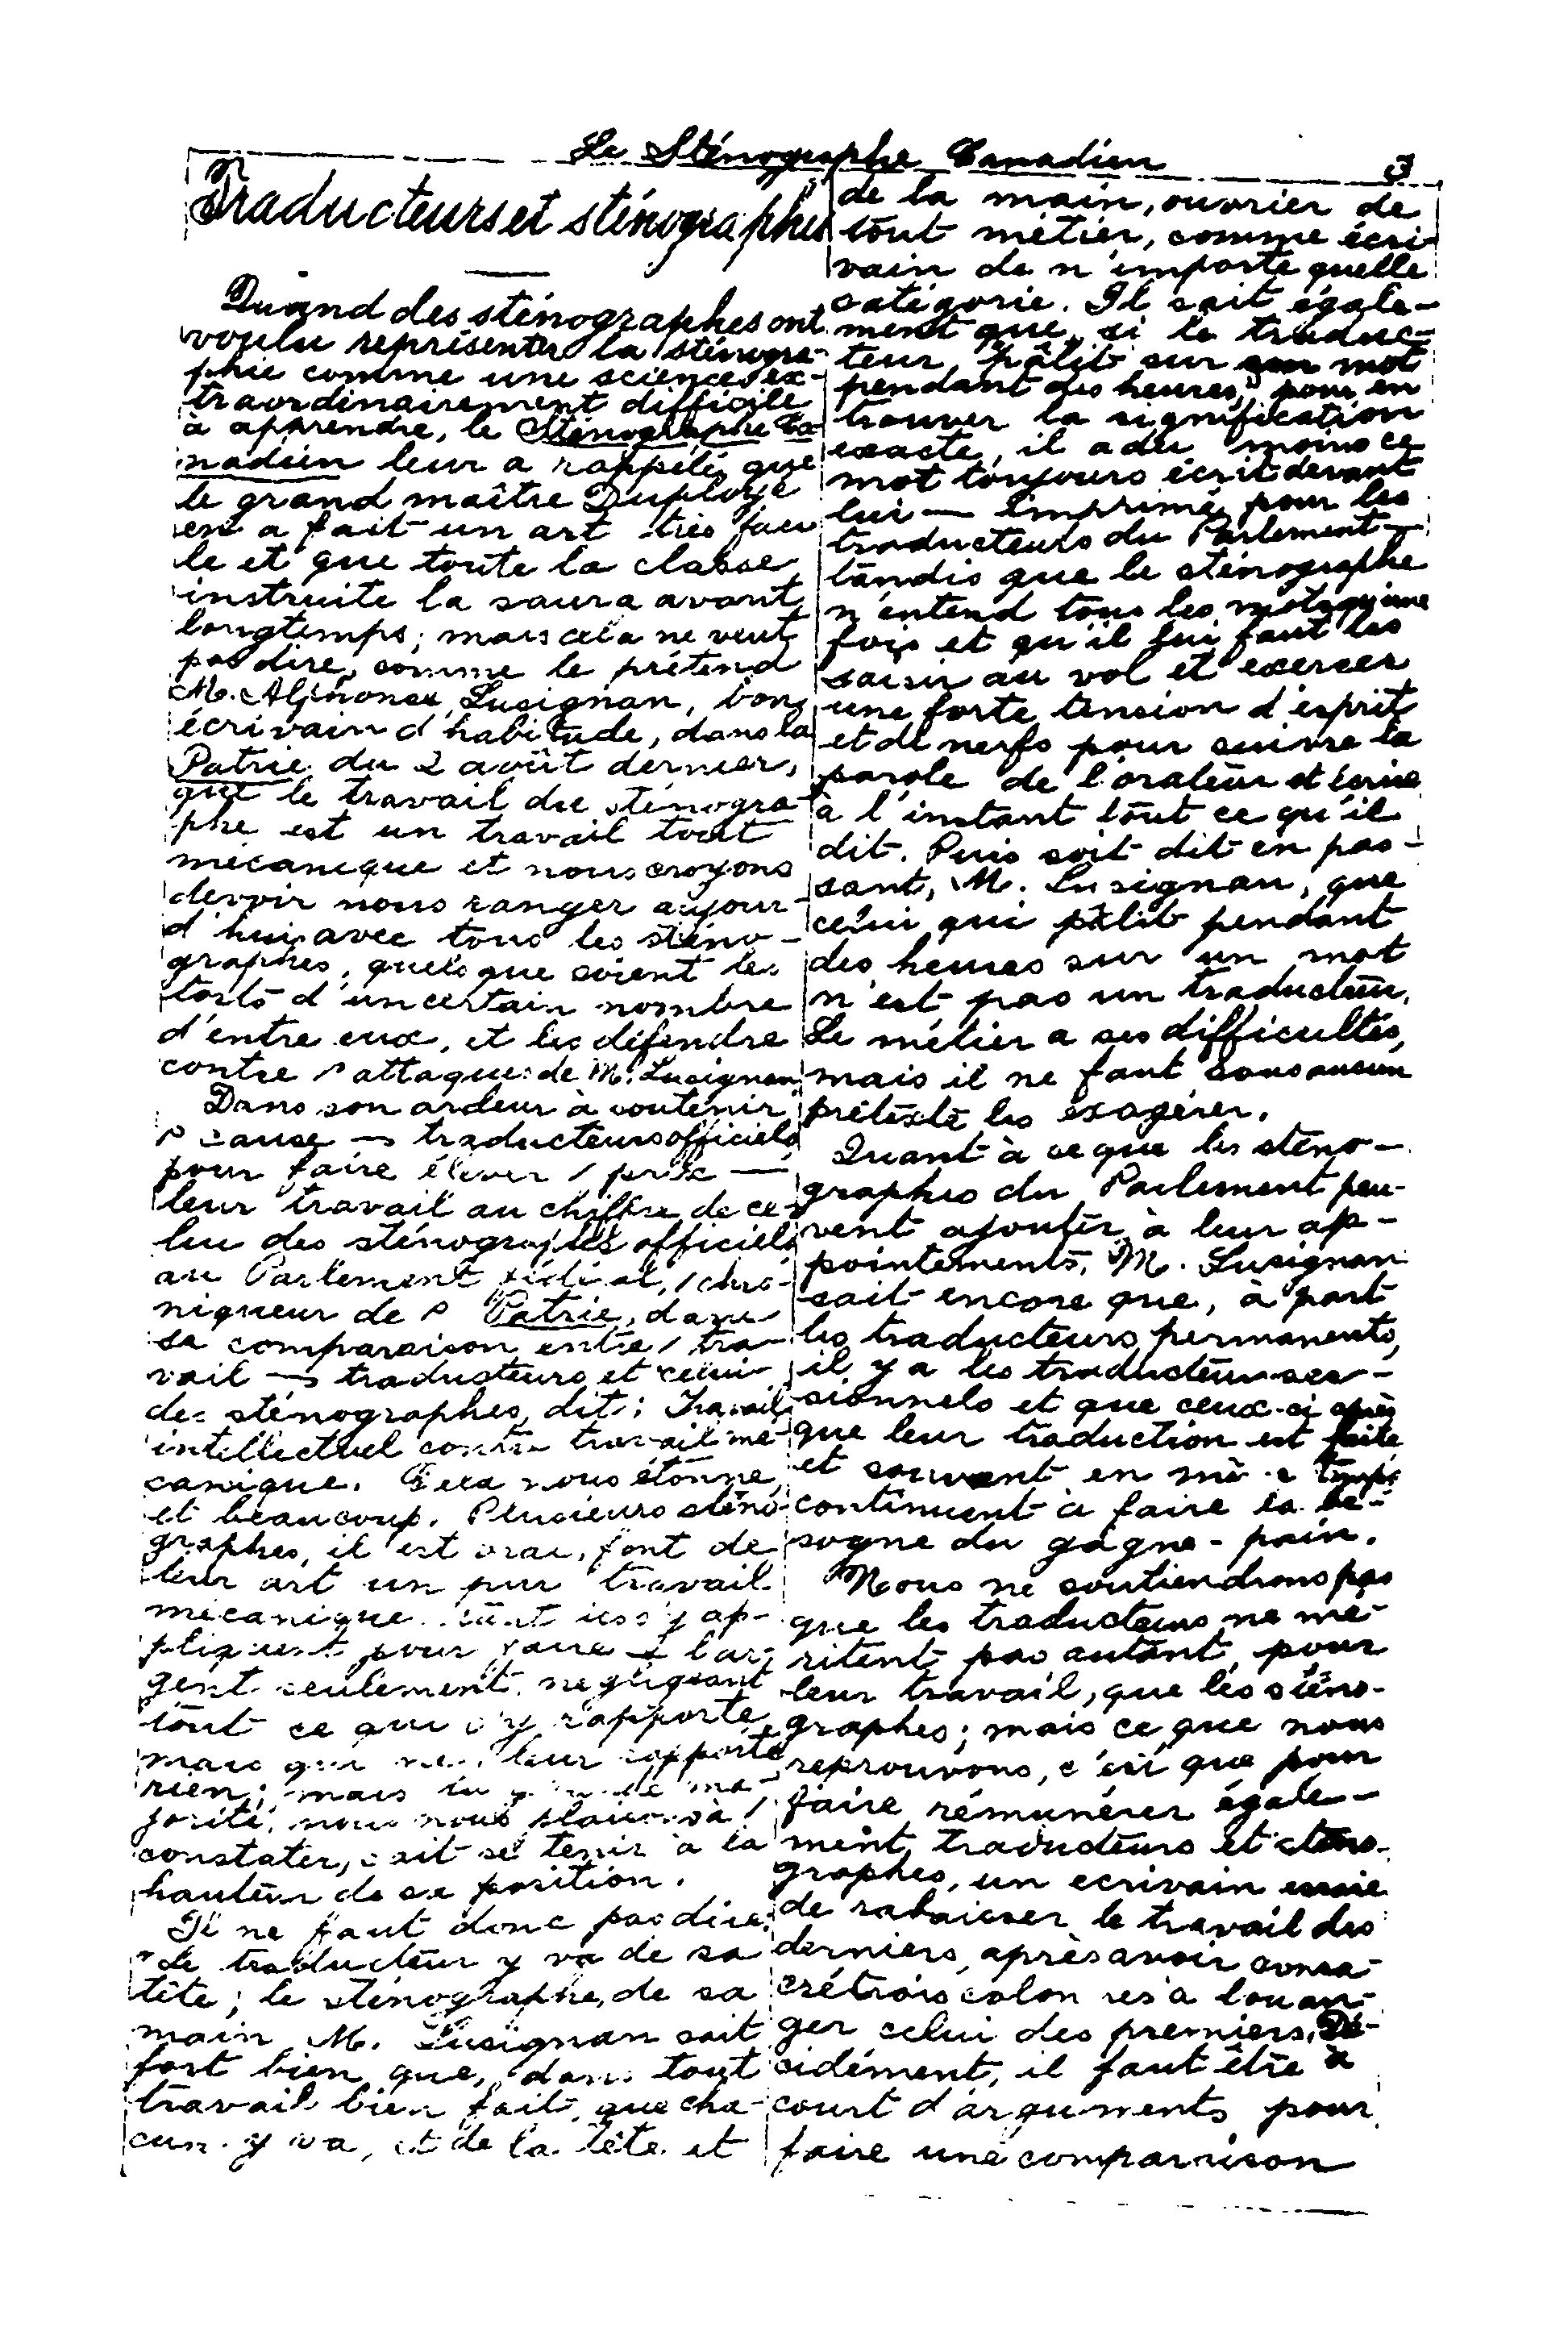 Le Sténographe Canadien 3
Traducteurs et sténographes
Quand des sténographes ont
voulu représenter la sténogra-
phie comme une science ex-
traordinairement difficile
à apprendre, le Sténographe Ca-
nadien leur a rappelé que
le grand maître Duployé
en a fait un art très faci
le et que toute la classe
instruite la saura avant
longtemps; mais cela ne veut
pas dire, comme le prétend
M. Alphonse Lusignan, bon
écrivain d'habitude, dans la
Patrie du 2 août dernier,
que le travail du sténogra-
phe est un travail tout
mécanique et nous croyons
devoir nous ranger aujour-
d'hui avec tous les sténo-
graphes, quels que soient les
torts d'un certain nombre
d'entre eux, et les défendre
contre attaques de M. Lusignan
Dans son ardeur à soutenir
cause traducteurs officiels
pour faire élever prix
leur travail au chiffre de ce-
lui des sténographes officiels
au Parlement fédéral, chro-
niqueur de Patrie, dans
sa comparaison entre tra-
vail traducteurs et celui
des sténographes, dit: Travail
intellectuel contre travail mé-
canique. Cela nous étonne,
et beaucoup. Plusieurs sténo-
graphes, il est vrai, font de
leur art un pur travail
mécanique s'y ap-
pliquent pour faire l'ar-
gent seulement, négligeant
tout ce qui s'y rapporte
mais qui ne leur rapporte
rien; mais la grande ma-
jorité, nous nous plaisons à
constater, sait se tenir à la
hauteur de sa position.
Il ne faut donc pas dire:
"Le traducteur y va de sa
tête; le sténographe, de sa
main M. Lusignan sait
fort bien que, dans tout
travail bien fait, que cha-
cun y va, et de la tête et
de la main, ouvrier de
tout métier, comme écri-
vain de n'importe quelle
catégorie. Il sait égale-
ment que, si le traduc-
teur "pâlit sur un mot
pendant des heures," pour en
trouver la signification
exacte, il a du moins ce
mot toujours écrit devant
lui — imprimé pour les
traducteurs du Parlement —
tandis que le sténographe
n'entend tous les mots qu'une
fois et qu'il lui faut les
saisir au vol et exercer
une forte tension d'esprit
et de nerfs pour suivre la
parole de l'orateur et écrire
à l'instant tout ce qu'il
dit. Puis soit dit en pas-
sant, M. Lusignan, que
celui qui pâlit pendant
des heures sur un mot
n'est pas un traducteur.
Le métier a ses difficultés,
mais il ne faut sous aucun
prétexte les exagérer.
Quant à ce que les sténo-
graphes du Parlement peu-
vent ajouter à leur ap-
pointements, M. Lusignan
sait encore que, à part
les traducteurs permanents,
il y a les traducteurs ses-
sionnels et que ceux-ci après
que leur traduction est faite
et souvent en même temps
continuent à faire la be-
sogne du gagne-pain.
Nous ne soutiendrons pas
que les traducteurs ne mé-
ritent pas autant, pour
leur travail, que les sténo-
graphes; mais ce que nous
reprouvons, c'est que pour
faire rémunérer égale-
ment, traducteurs et sténo-
graphes, un ecrivain essaie
de rabaisser le travail des
derniers, après avoir consa-
cré trois colonnes à louan-
ger celui des premiers. Dé-
cidément, il faut être à
court d'arguments pour
faire une comparaison